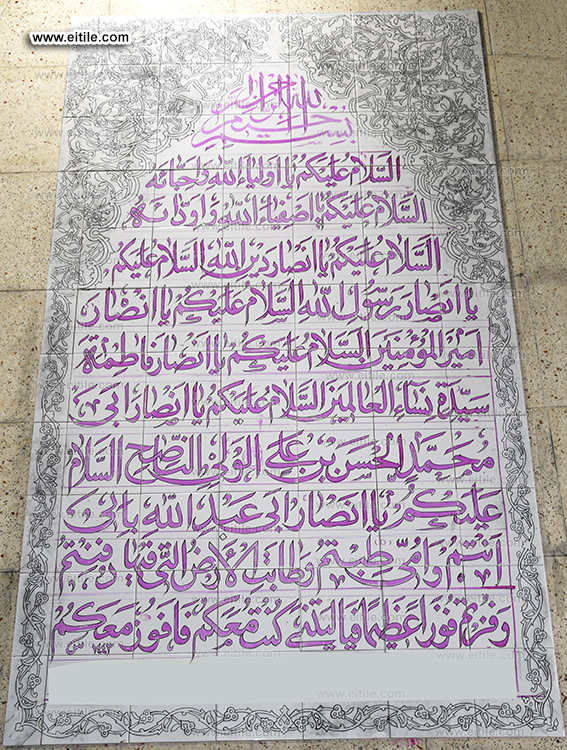 www.eitile.com
بسم الله الرحمن الرحيم
السلام عليكم يا اولياء الله واحبائه
السلام عليكم يا اصفياء الله و اودائه
السلام عليكم يا انصار دين الله السلام عليكم
يا انصار رسول الله السلام عليكم يا انصار
امير المؤمنين السلام عليكم يا انصار فاطمة
سيدة نساء العالمين السلام عليكم يا انصار ابى
محمد الحسن بن على الولى الناصح السلام
عليكم يا انصار ابى عبد الله بابى
انتم و امى طبتم وطابت الارض التى فيها دفنتم
وفزتم فوزا عظيما فياليتنى كنت معكم فافوز معكم